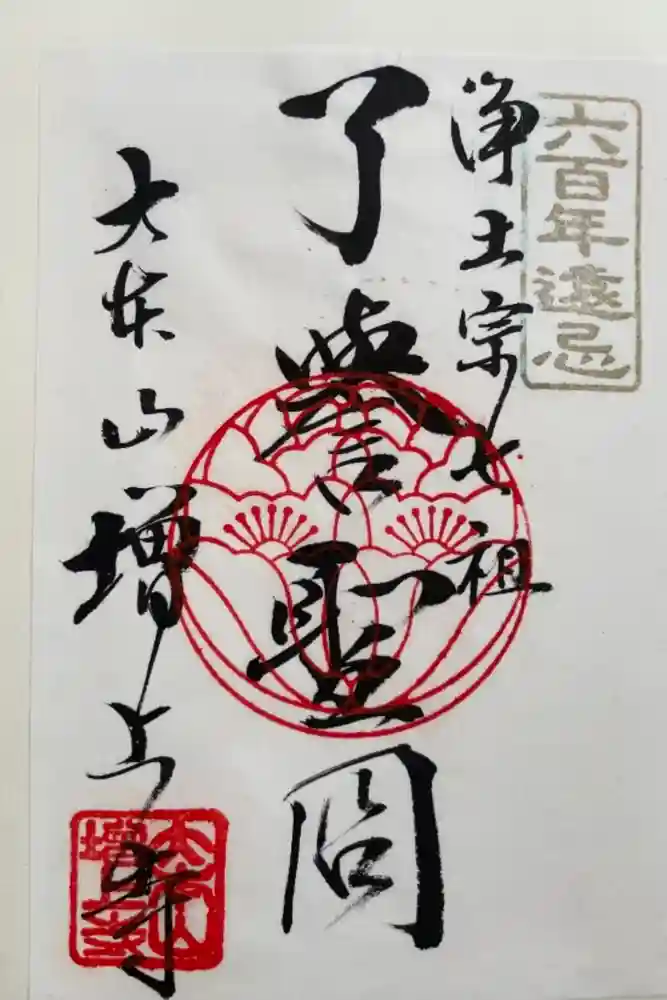 六百年遠忌
浄土宗七祖
了誉聖冏
大本山増上寺
大本山
増上寺